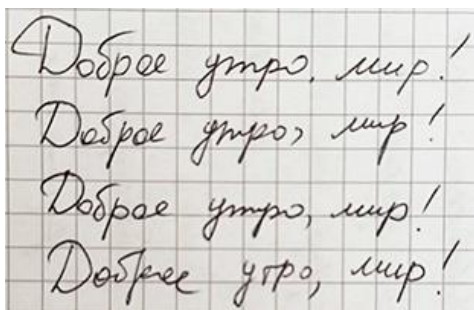 Доброе утро, мир!
Доброе утро, мир!
Доброе утро, мир!
Доброе утро, мир!